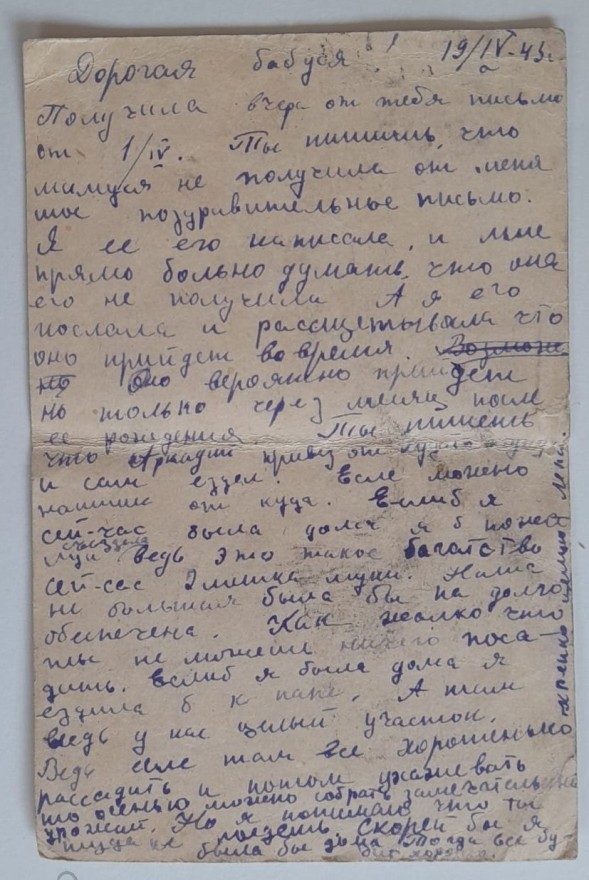 19/IV-43г.
Дорогая бабуся!
Получила вчера от тебя письмо
от 1/IV. Ты пишишь, что
мамуся не получила от меня
мое поздравительное письмо.
Я ее его написала, и мне
прямо больно думать, что она
его не получила А я его
послала и рассщетывала что
оно прийдет во время. Возмож
но Оно вероятно прийдет
но только через месяц после
ее рождения Ты пишешь
что Аркадий привез от
и сам ездел. Если можно
напиши от куда. Еслиб я
сей-час была дома я б
съездила Ведь это такое багатство
сей-сас 2 мешка муки. Наша
не большая была бы на долго
обеспечена. Как жалко что
ты не можеш ничего поса-
дить. Еслиб я была дома я
ездила б к папе. А там
ведь у нас целый участок.
Ведь если там все хорошенько
рассадить и потом ухаживать
то осенью можно собрать замечательный
урожай. Но я понимаю что ты
туда не поедешь Скорей бы я
была бы дома Тогда все бу-
дет хорошо.
крепко целую Лена.